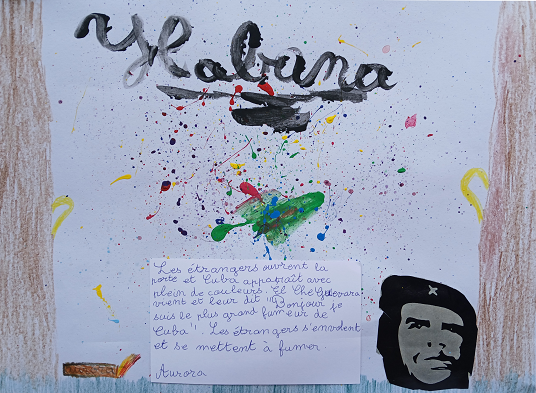 Habana
Les étrangers ouvrent la
porte et Cuba apparaît avec
plein de couleurs. El Ché Guevara
vient et leur dit "Bonjour je
suis le plus grand fumeur de
Cuba". Les étrangers s'envolent
et se mettent à fumer.
Aurora